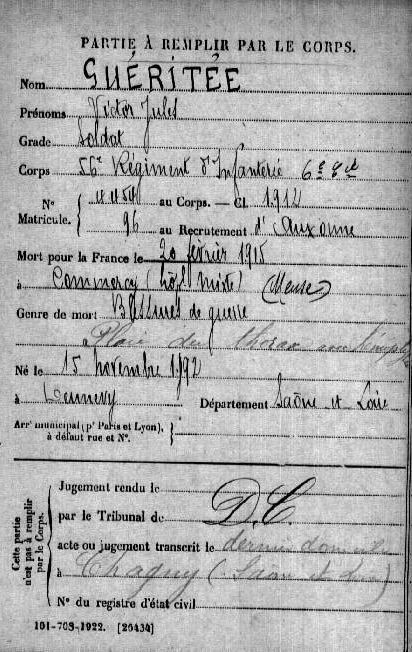 PARTIE À REMPLIR PAR LE CORPS.
Nom GUÉRITÉE
Prénoms Victor Jules
Grade Soldat
Corps 56e Régiment d'Infanterie 6e
N° Matricule. { au Corps. — Cl. 1912
96 au Recrutement d'Auxonne
Mort pour la France le 20 février 1915
à Commercy (hôp. mixte) (Meuse)
Genre de mort Blessures de guerre
Plaie du thorax
Né le 15 novembre 1892
à Département Saône et Loire
Arrt municipal (pr Paris et Lyon), à défaut rue et N°. }
Cette partie n'est pas à remplir par le Corps.
Jugement rendu le
par le Tribunal de D.C.
acte ou jugement transcrit le dernier
à Chagny (Saône et Loire)
N° du registre d'état civil
101-708-1922. [26434]